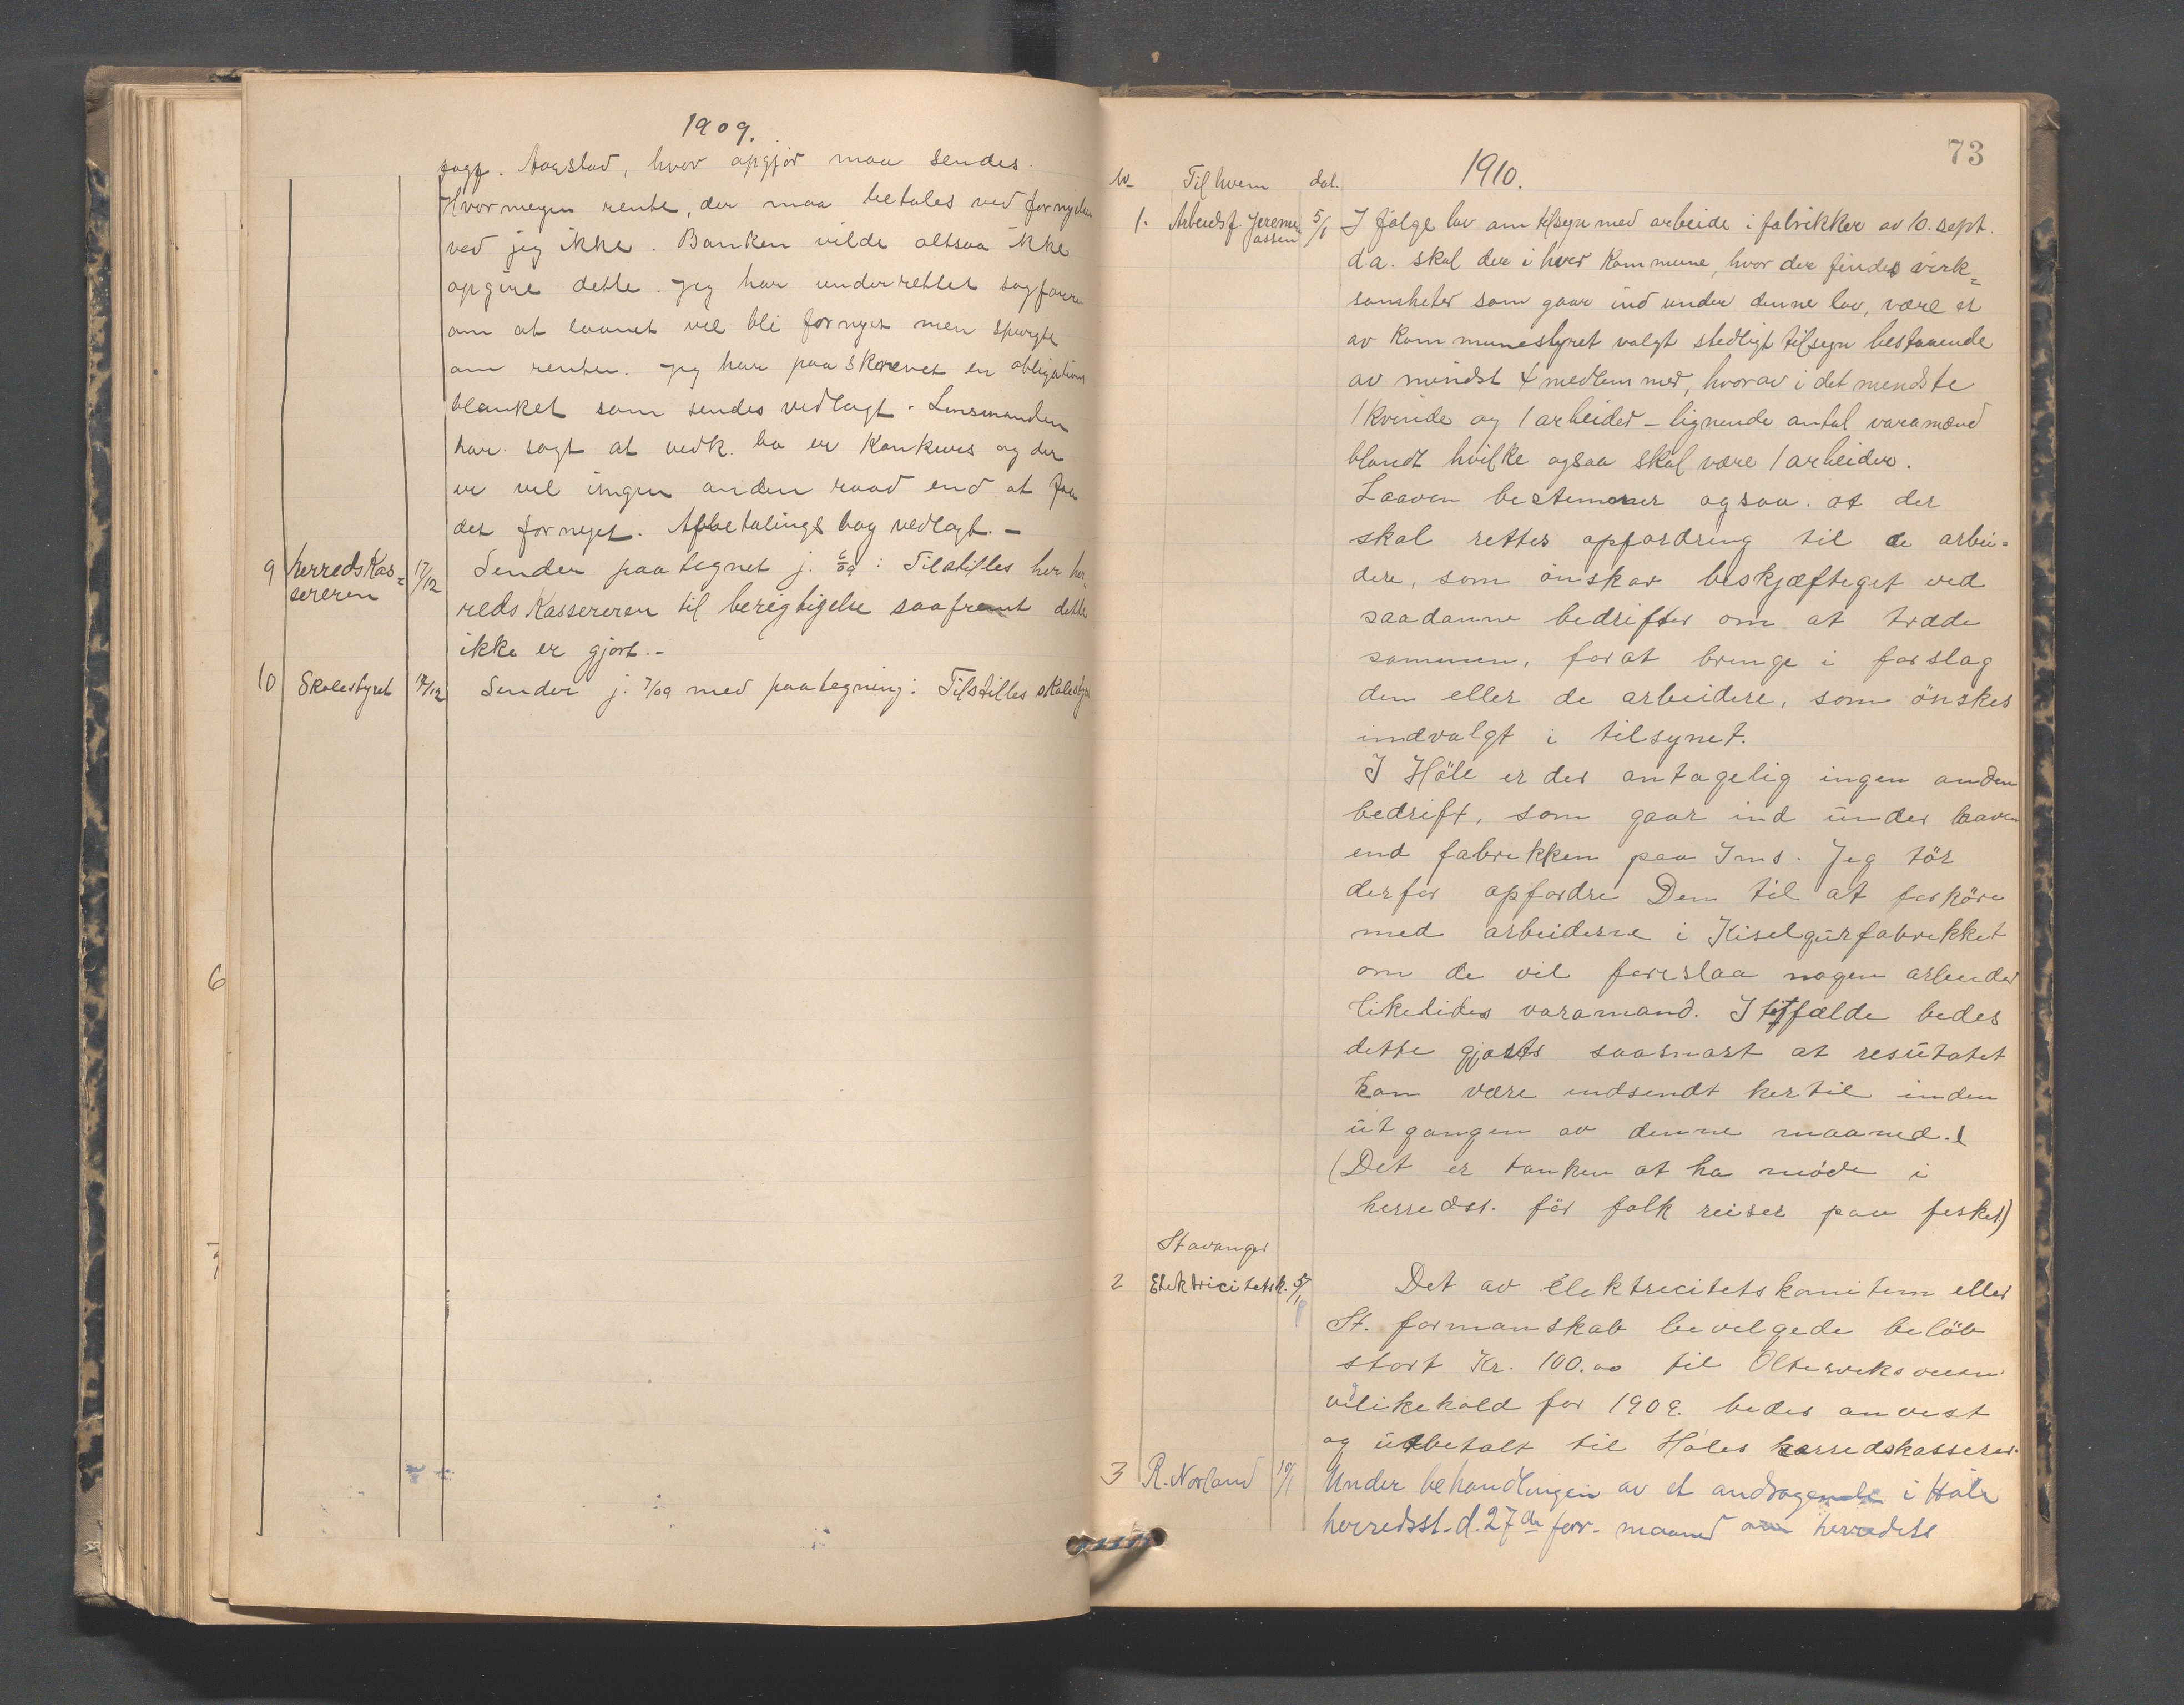 1909.
sagf. Aarstad, hvor opgjør maa sendes.
Hvormegen rente, der maa betales ved fornyelsen
ved jeg ikke. Banken vilde altsaa ikke
opgive dette. Jeg har underrettet sagføreren
om at laanet vil bli fornyet men spurgte
om renten. Jeg har paaskrevet en obligations
blanket som sendes vedlagt. Lensmanden
har sagt at vedk. bo er Konkurs og der
er vel ingen anden raad end at faa
det fornyet. Afbetalings bog vedlagt. —
9 herredsKas= 17/12 Sender paategnet j. 6/09: Tilstilles her her
sereren
reds Kassereren til berigtigelse saafremt dette
ikke er gjort. –
10 Skolestyret 17/12 Sender j. 7/09 med paategning: Tilstilles skolestyret
6
73
1910.
No Til hvem dat.
1. Arbeidsf. Jeremi 5/1 I følge lov om tilsyn med arbeide i fabrikker av 10. sept.
assen
d.a. skal der i hver Kommune, hvor der findes virk=
somheter som gaar ind under denne lov, være et
av Kommunestyret valgt stedligt tilsyn bestaaende
av mindst 4 medlemmer, hvorav i det mindste
1 kvinde og 1 arbeider – lignende antal varamænd
blandt hvilke ogsaa skal være 1 arbeider.
Laaven bestemmer ogsaa at der
skal rettes opfordring til de arbei=
dere, som önskar beskjæftiget ved
saadanne bedrifter om at træde
sammen, forat bringe i forslag
den eller de arbeidere, som önskes
indvalgt i tilsynet.
I Höle er der antagelig ingen anden
bedrift, som gaar ind under laaven
end fabrikken paa Ims. Jeg tör
derfor opfordre Dem til at forhöre
med arbeiderne i Kiselgurfabrikket
om de vil foreslaa nogen arbeider
likeledes varamand. I tilfælde bedes
dette gjort saasnart at resultatet
kan være indsendt hertil inden
utgangen av denne maaned.
(Det er tanken at ha möde i
herredst. för folk reiser paa fisket)
Stavanger
2 Elektricitetsk. 5/1 Det av Elektricitetskomiteen eller
St. formanskab bevilgede belöb
stort Kr. 100.00 til Oltesviksveien
vedlikehold for 1909. bedes anvist
og utbetalt til Höles herredskasserer.
3 R. Norland 10/1 Under behandlingen av et andragende i Höle
herredsst. d. 27de forr. maaned om herredets